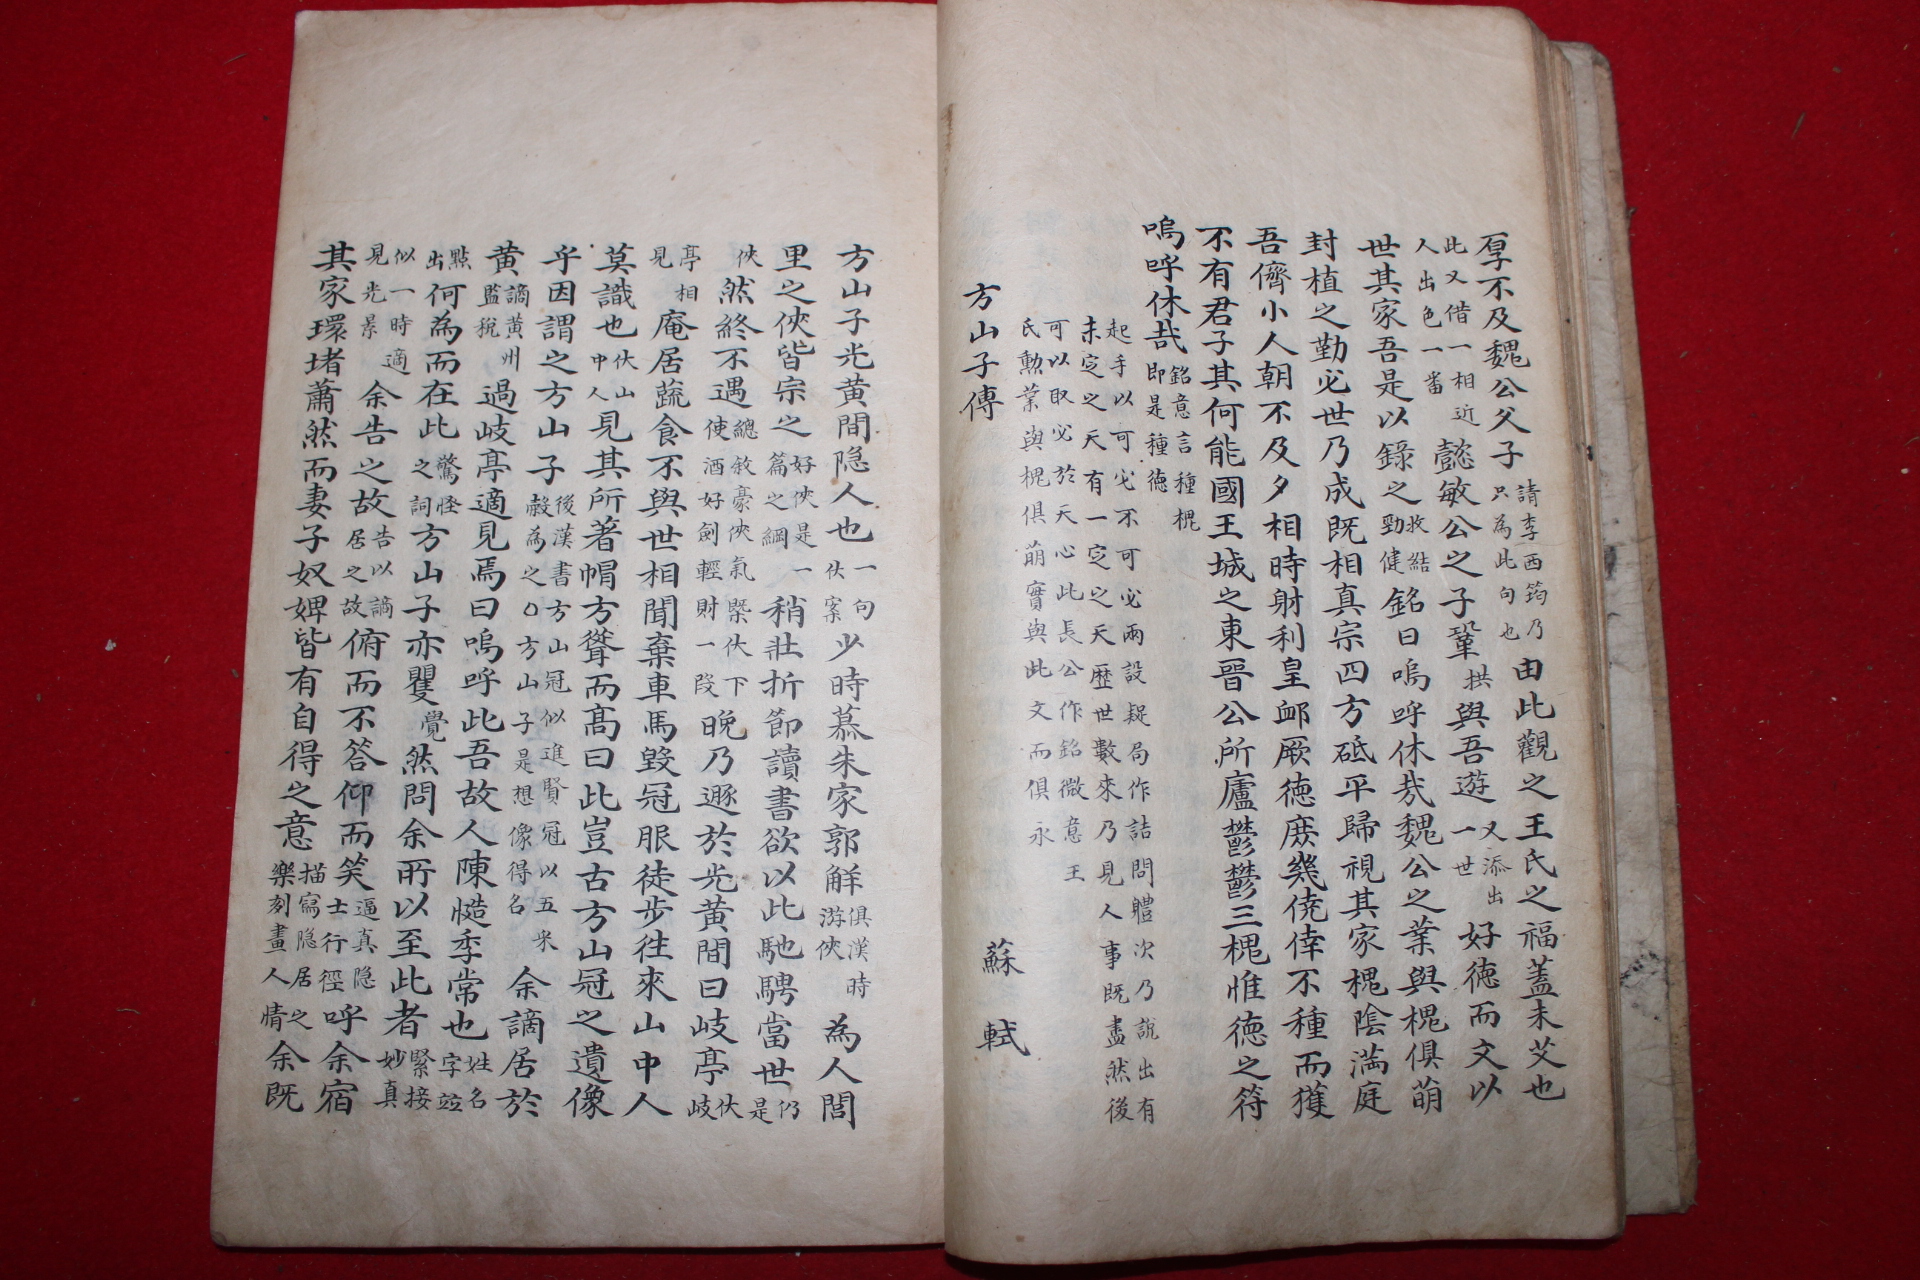 厚不及魏公父子請李西筠乃只為此句也由此觀之王氏之福蓋未艾也
此又借一相近人出色一番懿敏公之子鞏拱與吾遊又添出一世好德而文以
世其家吾是以錄之收結勁健銘曰嗚呼休哉魏公之業與槐俱萌
封植之勤必世乃成既相真宗四方砥平歸視其家槐陰滿庭
吾儕小人朝不及夕相時射利皇卹厥德庶幾僥倖不種而獲
不有君子其何能國王城之東晉公所廬鬱鬱三槐惟德之符
嗚呼休哉銘意言種槐即是種德
起手以可必不可必兩設疑局作詰問體次乃說出有
未定之天有一定之天歷世數來乃見人事既盡然後
可以取必於天心此長公作銘微意王
氏勳業與槐俱萌實與此文而俱永
方山子傳 蘇軾
方山子光黃間隐人也一句伏案少時慕朱家郭解俱漢時游俠為人閭
里之俠皆宗之好俠是一篇之綱稍壯折節讀書欲以此馳騁當世仍是
俠然終不遇總敘豪俠氣槩伏下使酒好劍輕財一段晚乃遯於光黃間曰岐亭伏岐
亭相見庵居蔬食不與世相聞棄車馬毀冠服徒步往來山中人
莫識也伏山中人見其所著帽方聳而高曰此豈古方山冠之遺像
乎因謂之方山子後漢書方山冠似進賢冠以五采縠為之○方山子是想像得名余謫居於
黃謫黃州監稅過岐亭適見焉曰嗚呼此吾故人陳慥季常也姓名字竝
點出何為而在此驚怪之詞方山子亦矍覺然問余所以至此者緊接妙真
似一時適見光景余告之故告以謫居之故俯而不答仰而笑逼真隐士行徑呼余宿
其家環堵蕭然而妻子奴婢皆有自得之意描寫隐居之樂刻畫人情余既